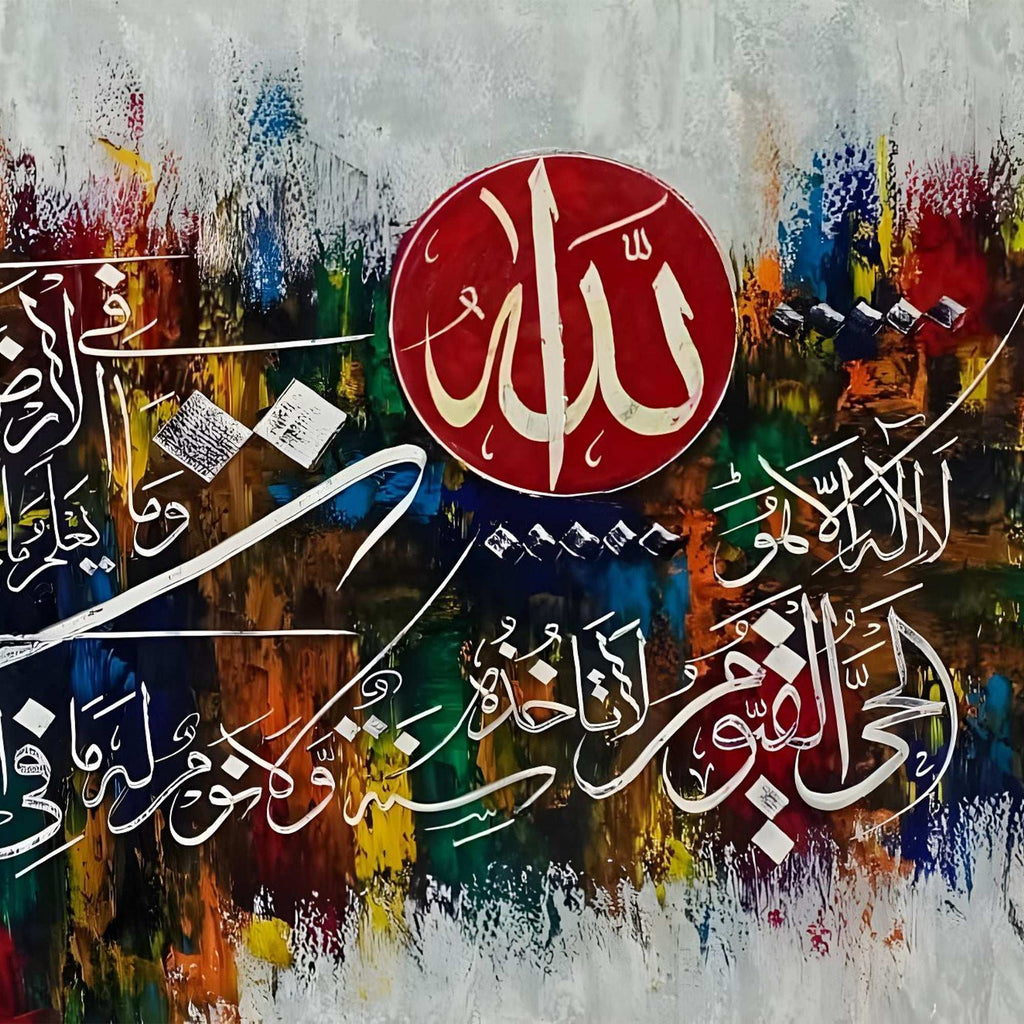 الله
لا إله إلا هو
الحي القيوم لا تأخذه سنة ولا نوم له ما في
وما في الأرض
يعلم ما